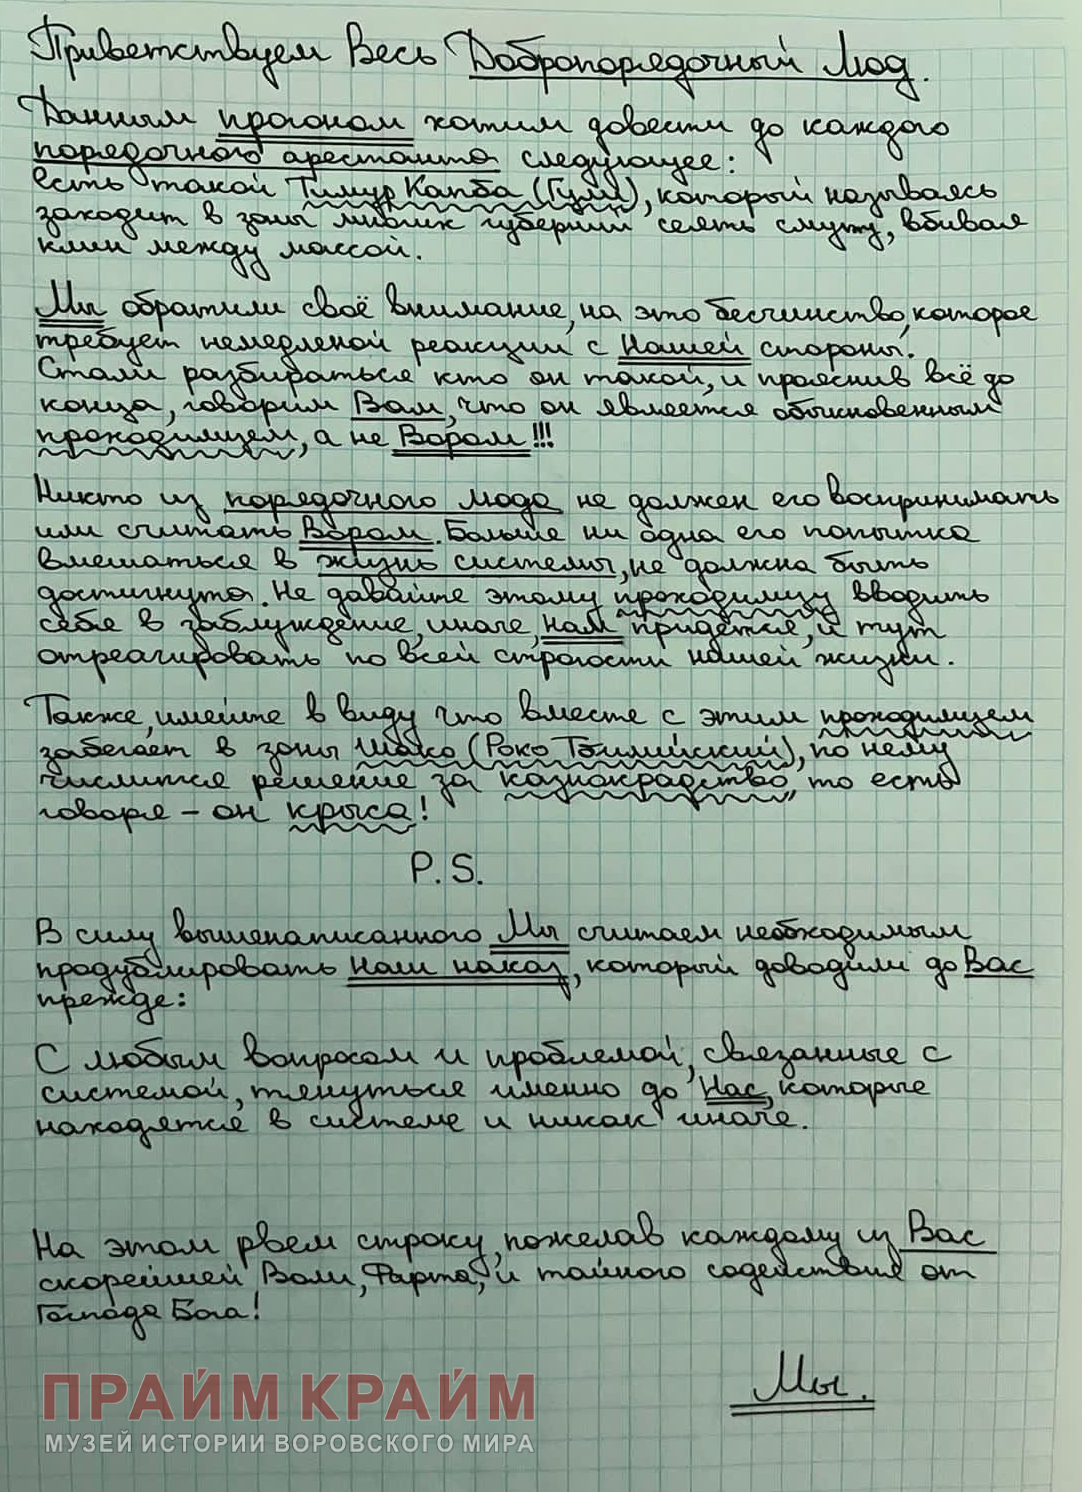 Приветствуем Весь Добропорядочный Люд.
Данным прогоном хотим довести до каждого
порядочного арестанта следующее:
есть такой Тимур Капба (Гули), который называясь
заходит в зоны многих губерний сеять смуту, вбивая
клин между массой.
Мы обратили своё внимание, на это бесчинство, которое
требует немедленой реакции с Нашей стороны.
Стали разбираться кто он такой, и прояснив всё до
конца, говорим Вам, что он является обыкновенным
проходимцем, а не Вором!!!
Никто из порядочного люда не должен его воспринимать
или считать Вором. Больше ни одна его попытка
вмешаться в жизнь системы, не должна быть
достигнута. Не давайте этому проходимцу вводить
себя в заблуждение, иначе, нам придётся, и тут
отреагировать по всей строгости нашей жизни.
Также, имейте в виду что вместе с этим проходимцем
забегает в зоны Шако (Роко Тбилисский), по нему
числится решение за казнокрадство, то есть
говоря – он крыса!
P.S.
В силу вышенаписанного Мы считаем необходимым
продублировать наш наказ, который доводили до Вас
прежде:
С любым вопросом и проблемой, связанные с
системой, тянуться именно до Нас, которые
находятся в системе и никак иначе.
На этом рвем строку, пожелав каждому из Вас
скорейшей Воли, Фарта, и тайного содействия от
Господа Бога!
Мы.
ПРАЙМ КРАЙМ
МУЗЕЙ ИСТОРИИ ВОРОВСКОГО МИРА